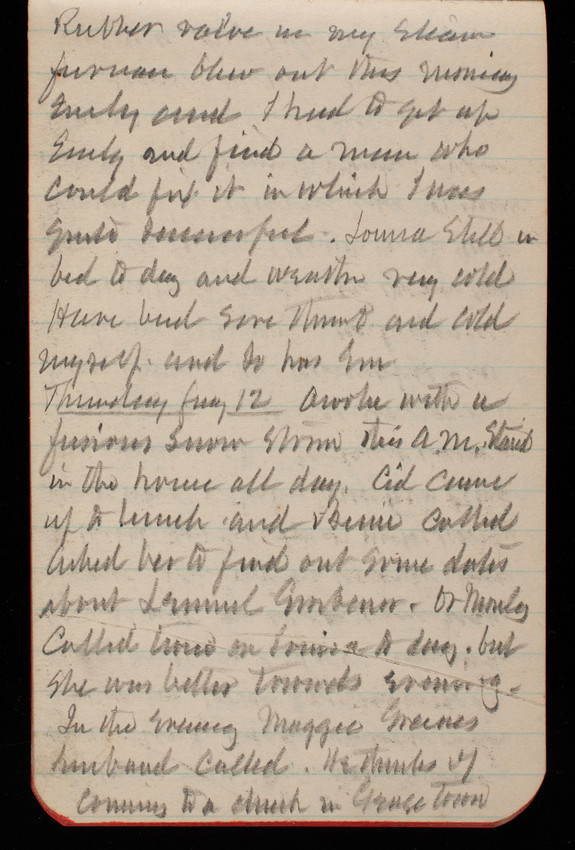 Rubber valve in my steam
furnace blew out this morning
early and I had to get up
Early and find a man who
could fix it in which I was
quite successful. Louisa still in
bed to day and weather very cold
Have had sore throat and cold
myself. and so has Em
Thursday Jany 12 Awoke with a
furious snow storm this A.M. Staid
in the house all day. Cid came
up to lunch and called
Asked her to find out some dates
about Lemuel Grosvenor. Dr
called twice on Louisa to day. but
she was better towards evening.
In the evening Maggie Greenes
husband called. He thinks of
coming to a church in Georgetown